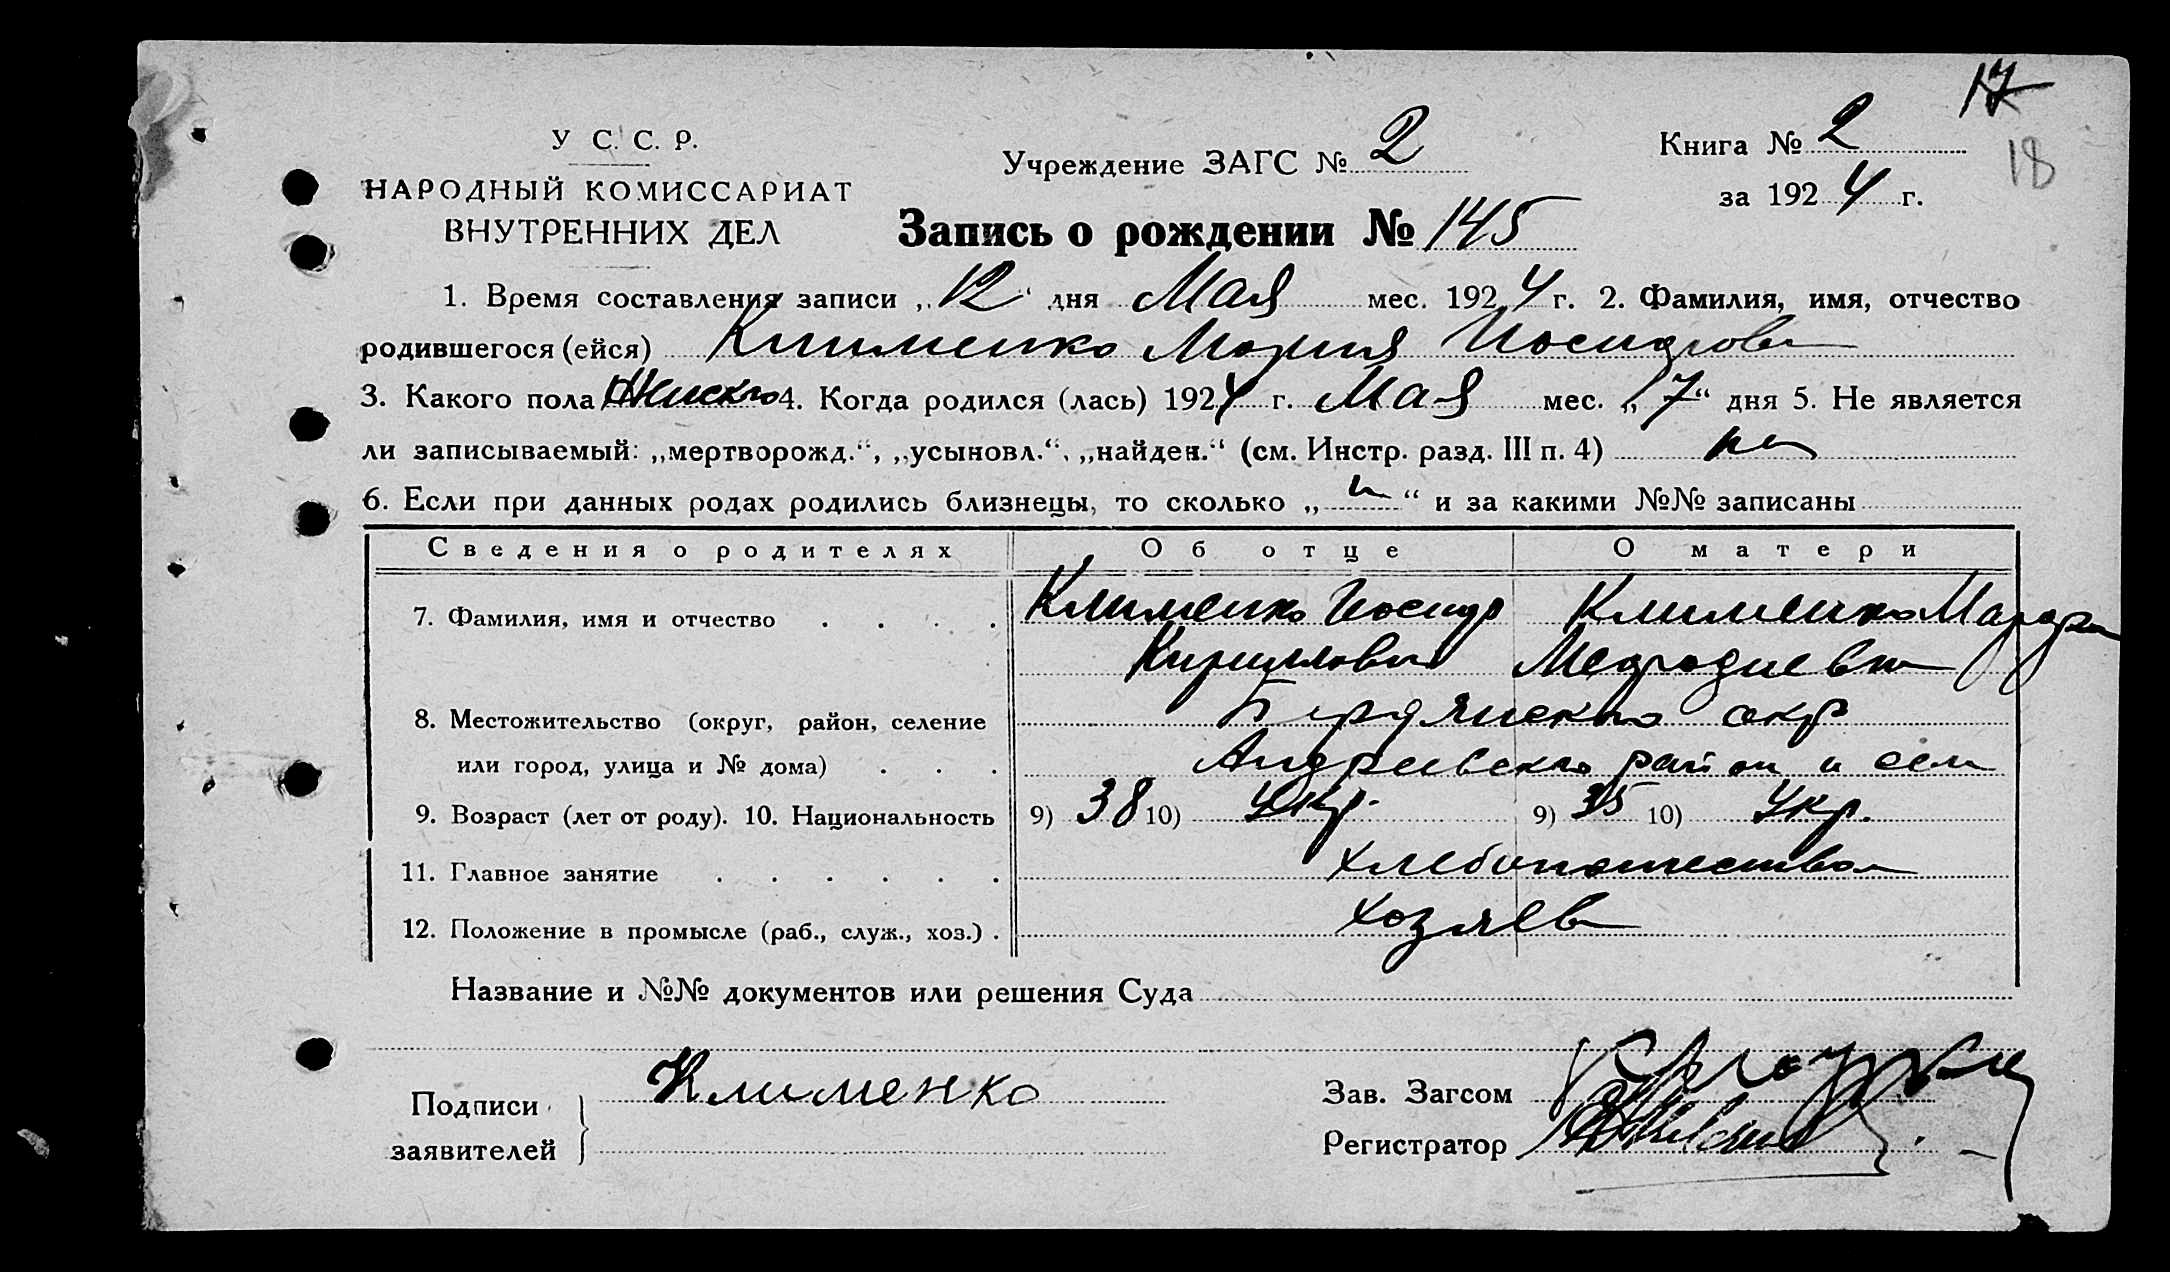 17
18
У С. С. Р.
НАРОДНЫЙ КОМИССАРИАТ
ВНУТРЕННИХ ДЕЛ
Учреждение ЗАГС № 2
Книга № 2
за 1924 г.
Запись о рождении № 145
1. Время составления записи „12“ дня Мая мес. 1924 г. 2. Фамилия, имя, отчество
родившегося (ейся) Клименко Мария Иосифовн
3. Какого пола Женского 4. Когда родился (лась) 1924 г. Мая мес. „7“ дня 5. Не является
ли записываемый: „мертворожд.“, „усыновл.“, „найден.“ (см. Инстр. разд. III п. 4) нет
6. Если при данных родах родились близнецы, то сколько „ “ и за какими №№ записаны
Сведения о родителях Об отце О матери
7. Фамилия, имя и отчество . . . . Клименко Иосиф Клименко Марфа
Кириллович Мефодиевна
8. Местожительство (округ, район, селение Бердянского окр
или город, улица и № дома) . . . Андреевского район и села
9. Возраст (лет от роду). 10. Национальность 9) 38 10) Укр. 9) 35 10) Укр.
11. Главное занятие . . . . . . хлебопашество
12. Положение в промысле (раб., служ., хоз.) . хозяев
Название и №№ документов или решения Суда
Подписи Клименко Зав. Загсом
заявителей Регистратор